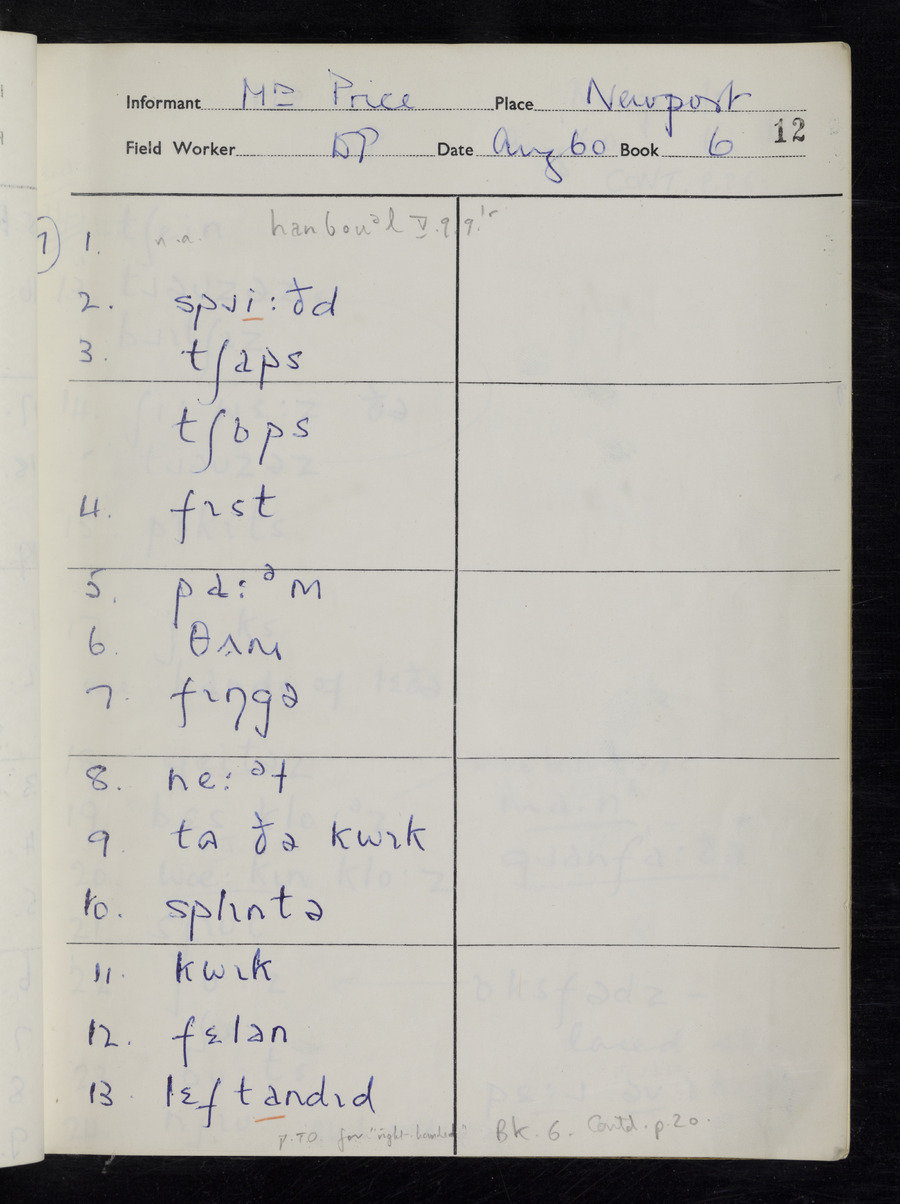 Informant Mr Price Place Newport
Field Worker DP Date Aug 60 Book 6 12
7) 1. n.a. hanbouᵊl V.9.9.
2. spɹiːðd
3. tʃaps
tʃɒps
4. fɪst
5. pɑːᵊm
6. θʌm
7. fɪŋgə
8. neːᵊɫ
9. tə ðə kwɪk
10. splɪntə
11. kwɪk
12. fɛlən
13. lɛftandɪd
p.T.O. for "right-handed" Bk. 6. Contd. p. 20.